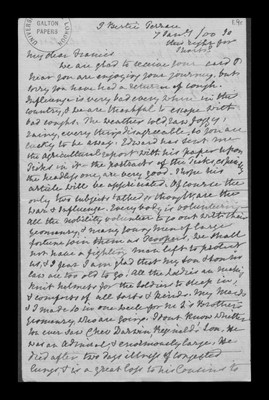 GALTON PAPERS
UNIVERSITY
3 Bertie Terrace
My dear Francis
We are glad to receive your card &
hear you are enjoying your journey, but
sorry you have had a return of cough.
Influenza is very bad every where in the
country & we are thankful to escape with
bad coughs. The weather cold, raw, foggy &
rainy, every thing disagreeable, so you are
lucky to be away. Edward has sent me
the agricultural report with his paper upon
Ticks in
the headless one, are very good. I hope his
article will be appreciated. Of course the
only two subjects talked or thought are the
war & Influenza. Every body is volunteering
all the nobility volunteer to go out with their
yeomanry, & many young men of large
fortune join them as troopers, we shall
not have a fighting man left to protect
us, & I fear I am glad that my son & son in
law are too old to go. All the ladies are making
knit helmets for the soldiers to sleep in,
& comforts of all sorts & kinds. My maids
& I made six in one week for Mr
yeomanry who are going. I dont know whether
you ever saw Cher Darwin, Reginald's Son, He
was an Admiral, & enormously large. He
died after two days illness of congested
lungs, & is a great loss to his Cousins to